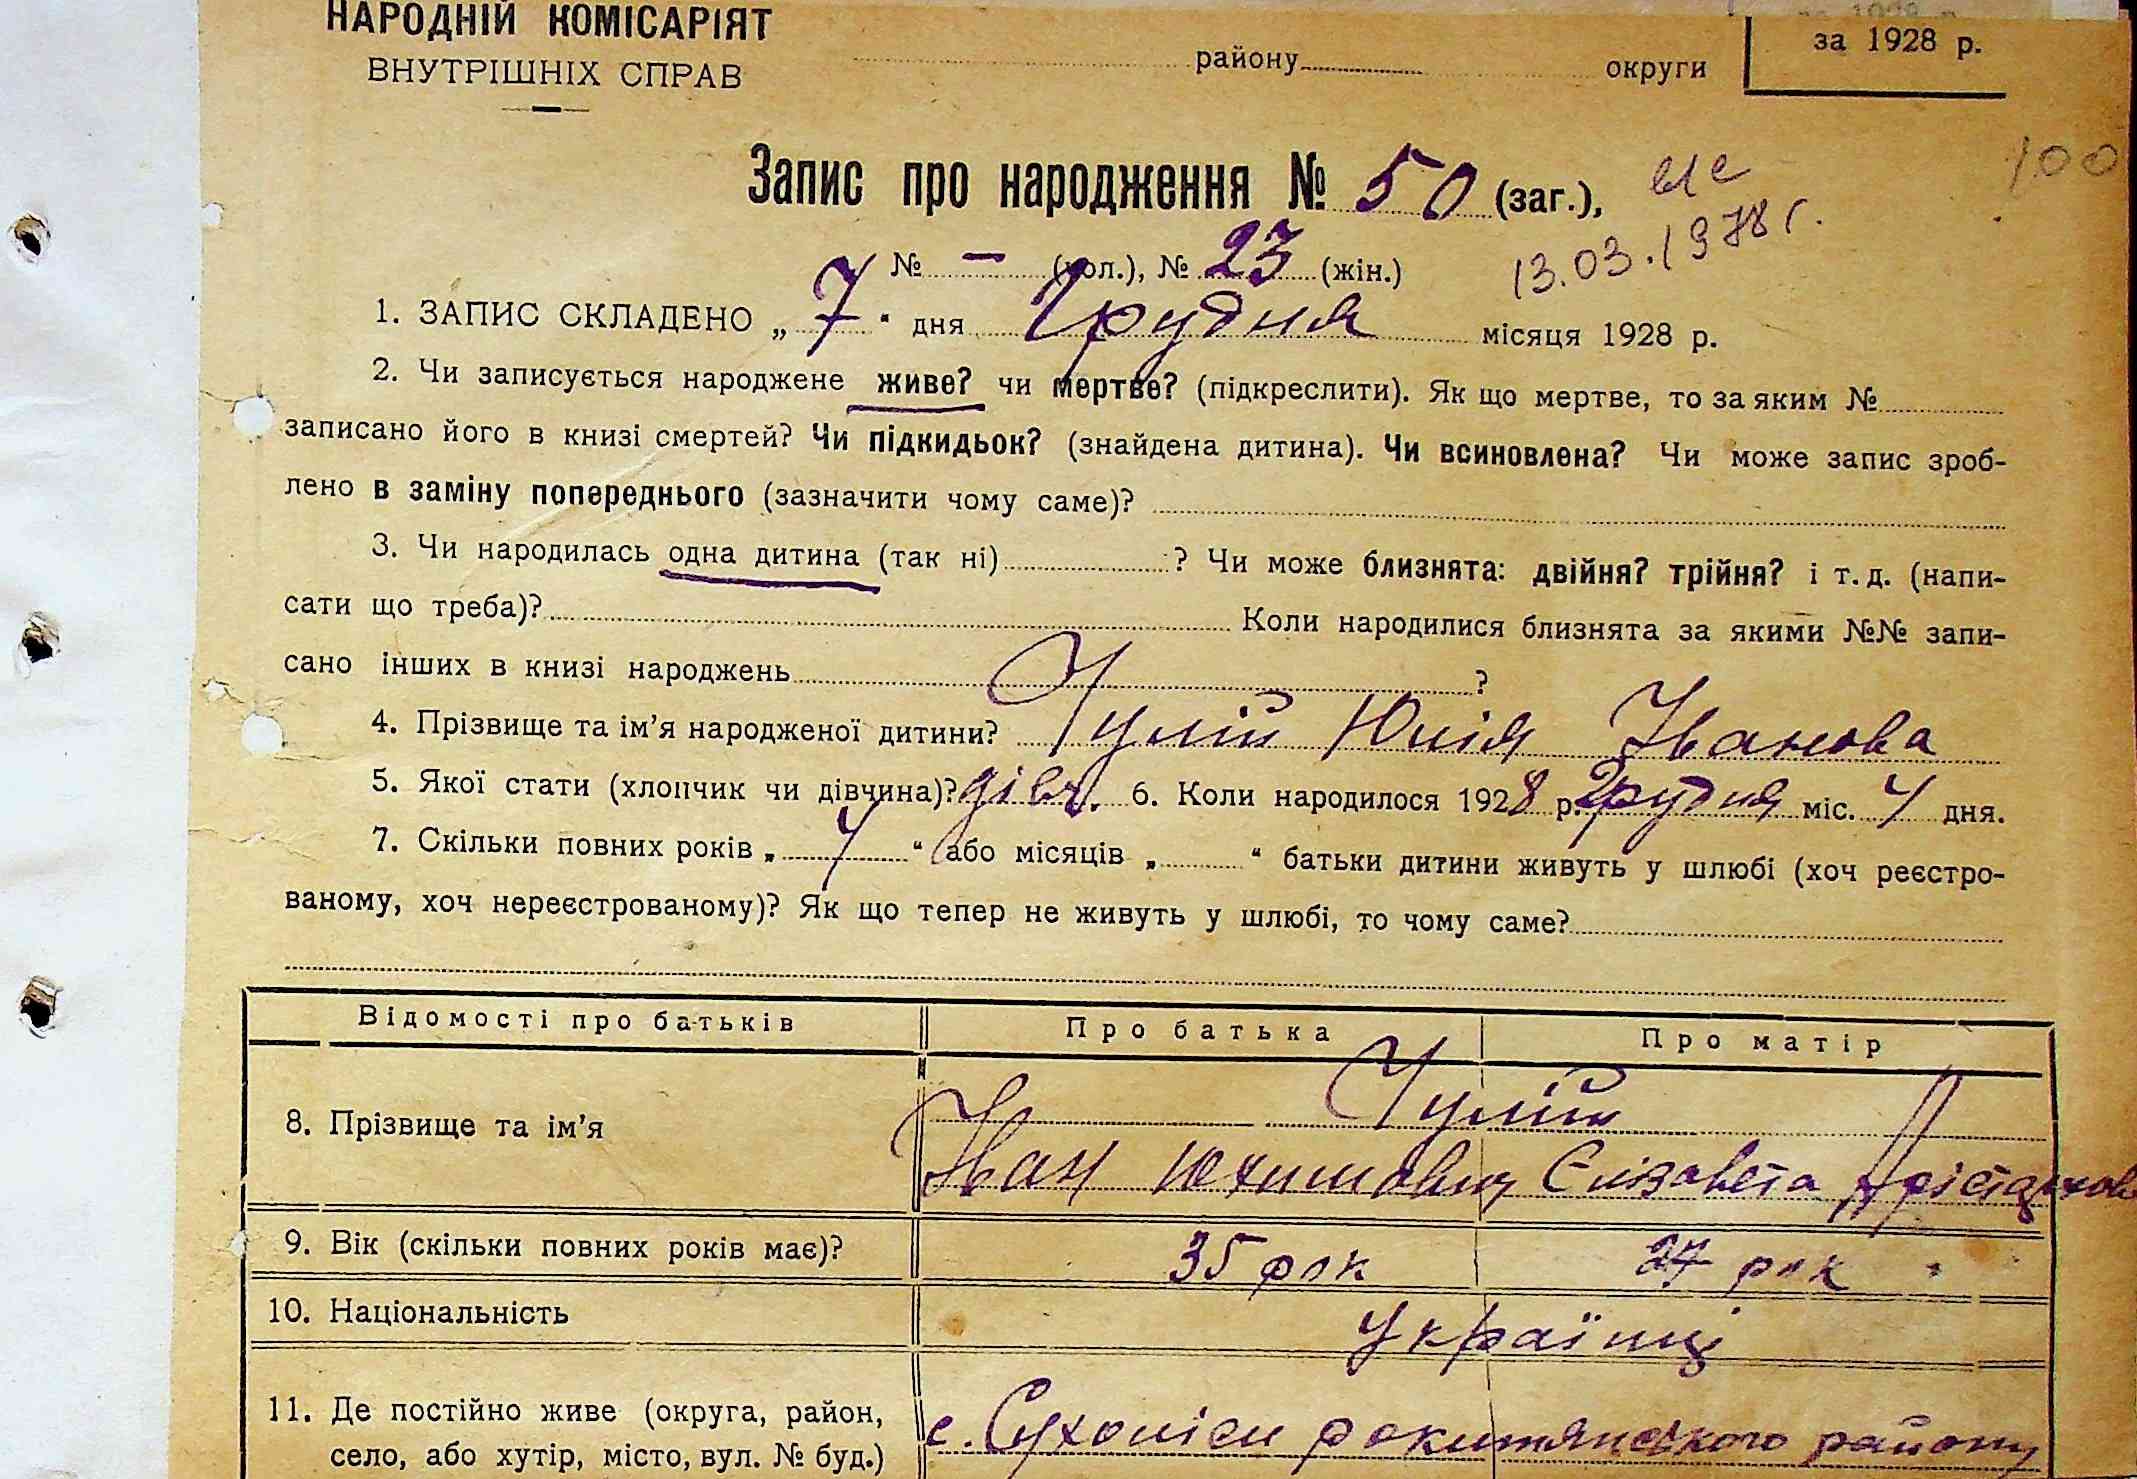 НАРОДНІЙ КОМІСАРІЯТ
ВНУТРІШНІХ СПРАВ
району округи
за 1928 р.
100
Запис про народження № 50 (заг.),
13.03.1978 г.
№ – (чол.), № 23 (жін.)
1. ЗАПИС СКЛАДЕНО „ 7 " дня Грудня місяця 1928 р.
2. Чи записується народжене живе? чи мертве? (підкреслити). Як що мертве, то за яким №
записано його в книзі смертей? Чи підкидьок? (знайдена дитина). Чи всиновлена? Чи може запис зроб-
лено в заміну попереднього (зазначити чому саме)?
3. Чи народилась одна дитина (так ні) ? Чи може близнята: двійня? трійня? і т. д. (напи-
сати що треба)? Коли народилися близнята за якими №№ запи-
сано інших в книзі народжень ?
4. Прізвище та ім’я народженої дитини? Чулій Юлія Іванова
5. Якої стати (хлопчик чи дівчина)? дівч. 6. Коли народилося 1928 р. Грудня міс. 4 дня.
7. Скільки повних років „ " або місяців „ " батьки дитини живуть у шлюбі (хоч реєстро-
ваному, хоч нереєстрованому)? Як що тепер не живуть у шлюбі, то чому саме?
Відомості про батьків Про батька Про матір
8. Прізвище та ім’я Чулій
Іван Юхимович Єлізавета
9. Вік (скільки повних років має)? 35 рок 27 рок
10. Національність Українці
11. Де постійно живе (округа, район, с. Сухоліси рокитянського району
село, або хутір, місто, вул. № буд.)